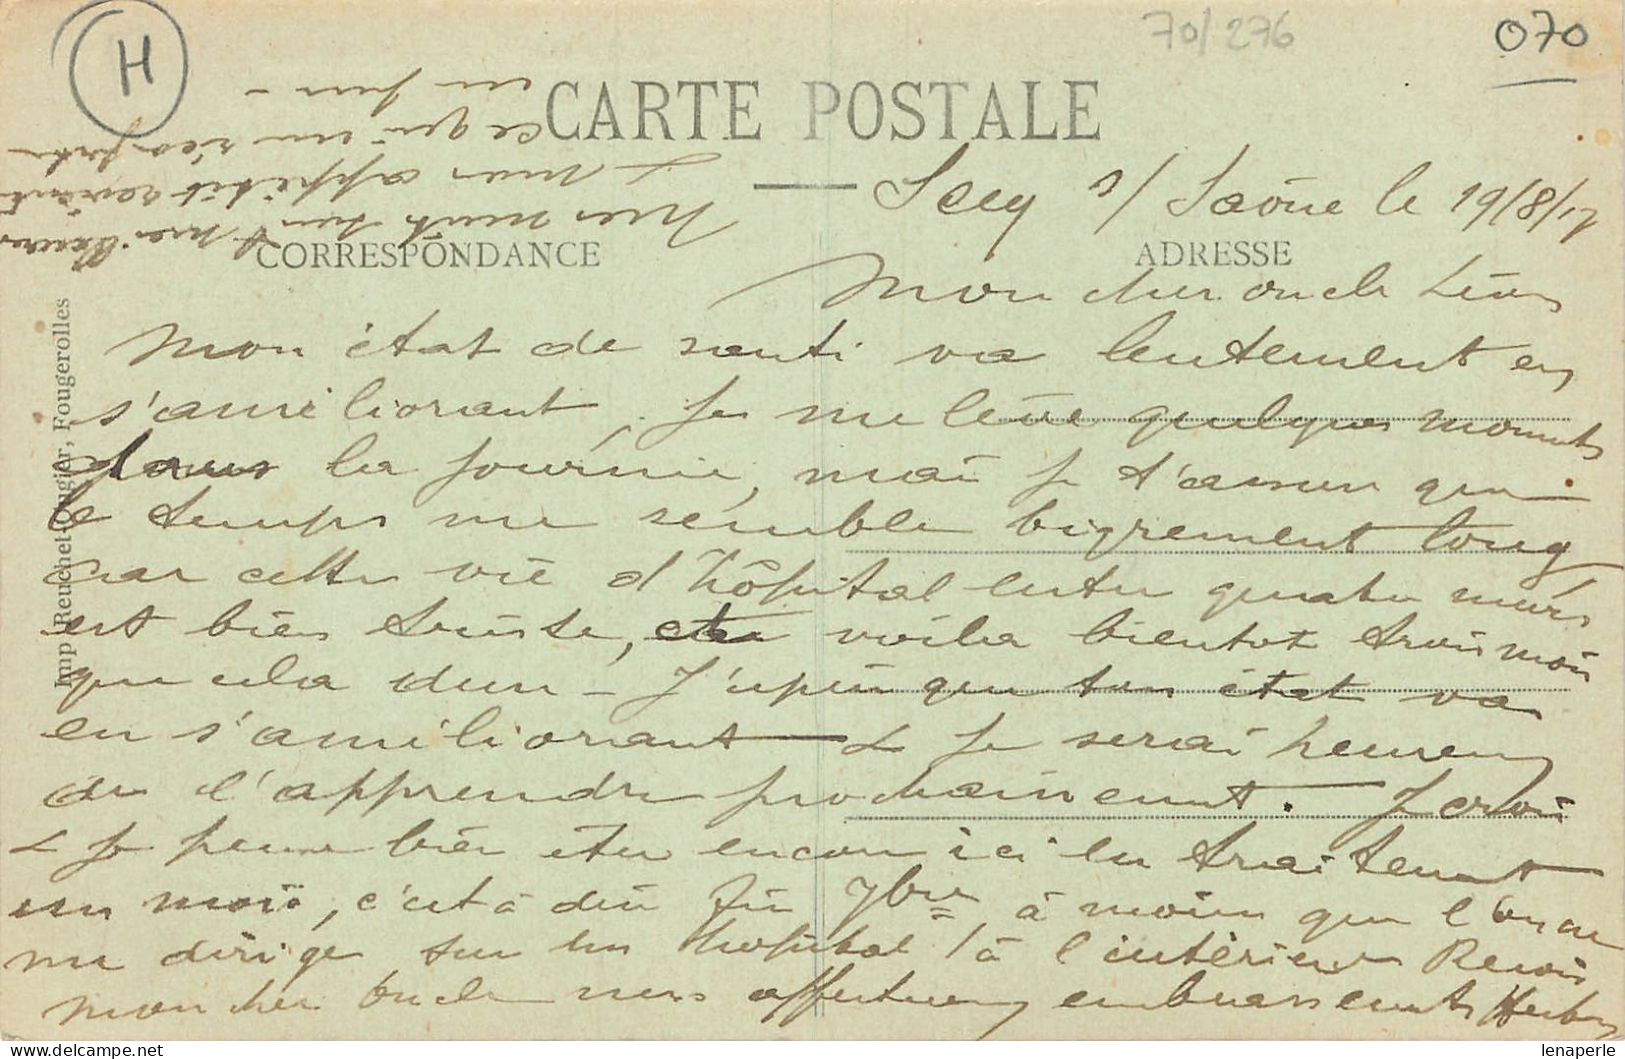 H
70/276
070
CARTE POSTALE
CORRESPONDANCE
ADRESSE
Imp Reuchet-Fougier, Fougerolles
Scey s/ Saône le 19/8/17
Mon cher oncle Léon
Mon état de santé va lentement en
s'améliorant, Je me lève quelques moments
dans la journée, mais je t'assure que
le temps me semble bigrement long
car cette vie d'hôpital entre quatre murs
est bien triste, et voila bientot trois mois
que cela dure - J'espère que ton état va
en s'améliorant & je serai heureux
de l'apprendre prochainement. Je crois
& je pense bien être encore ici en traitement
un mois, c'est à dire fin 7bre à moins que l'on ne
me dirige sur un hopital à l'intérieur Reçois
mon cher oncle mes affectueux embrassements
Mes nuits sont meilleures
& mon appétit revient
ce qui me réconforte
un peu -
lenaperle